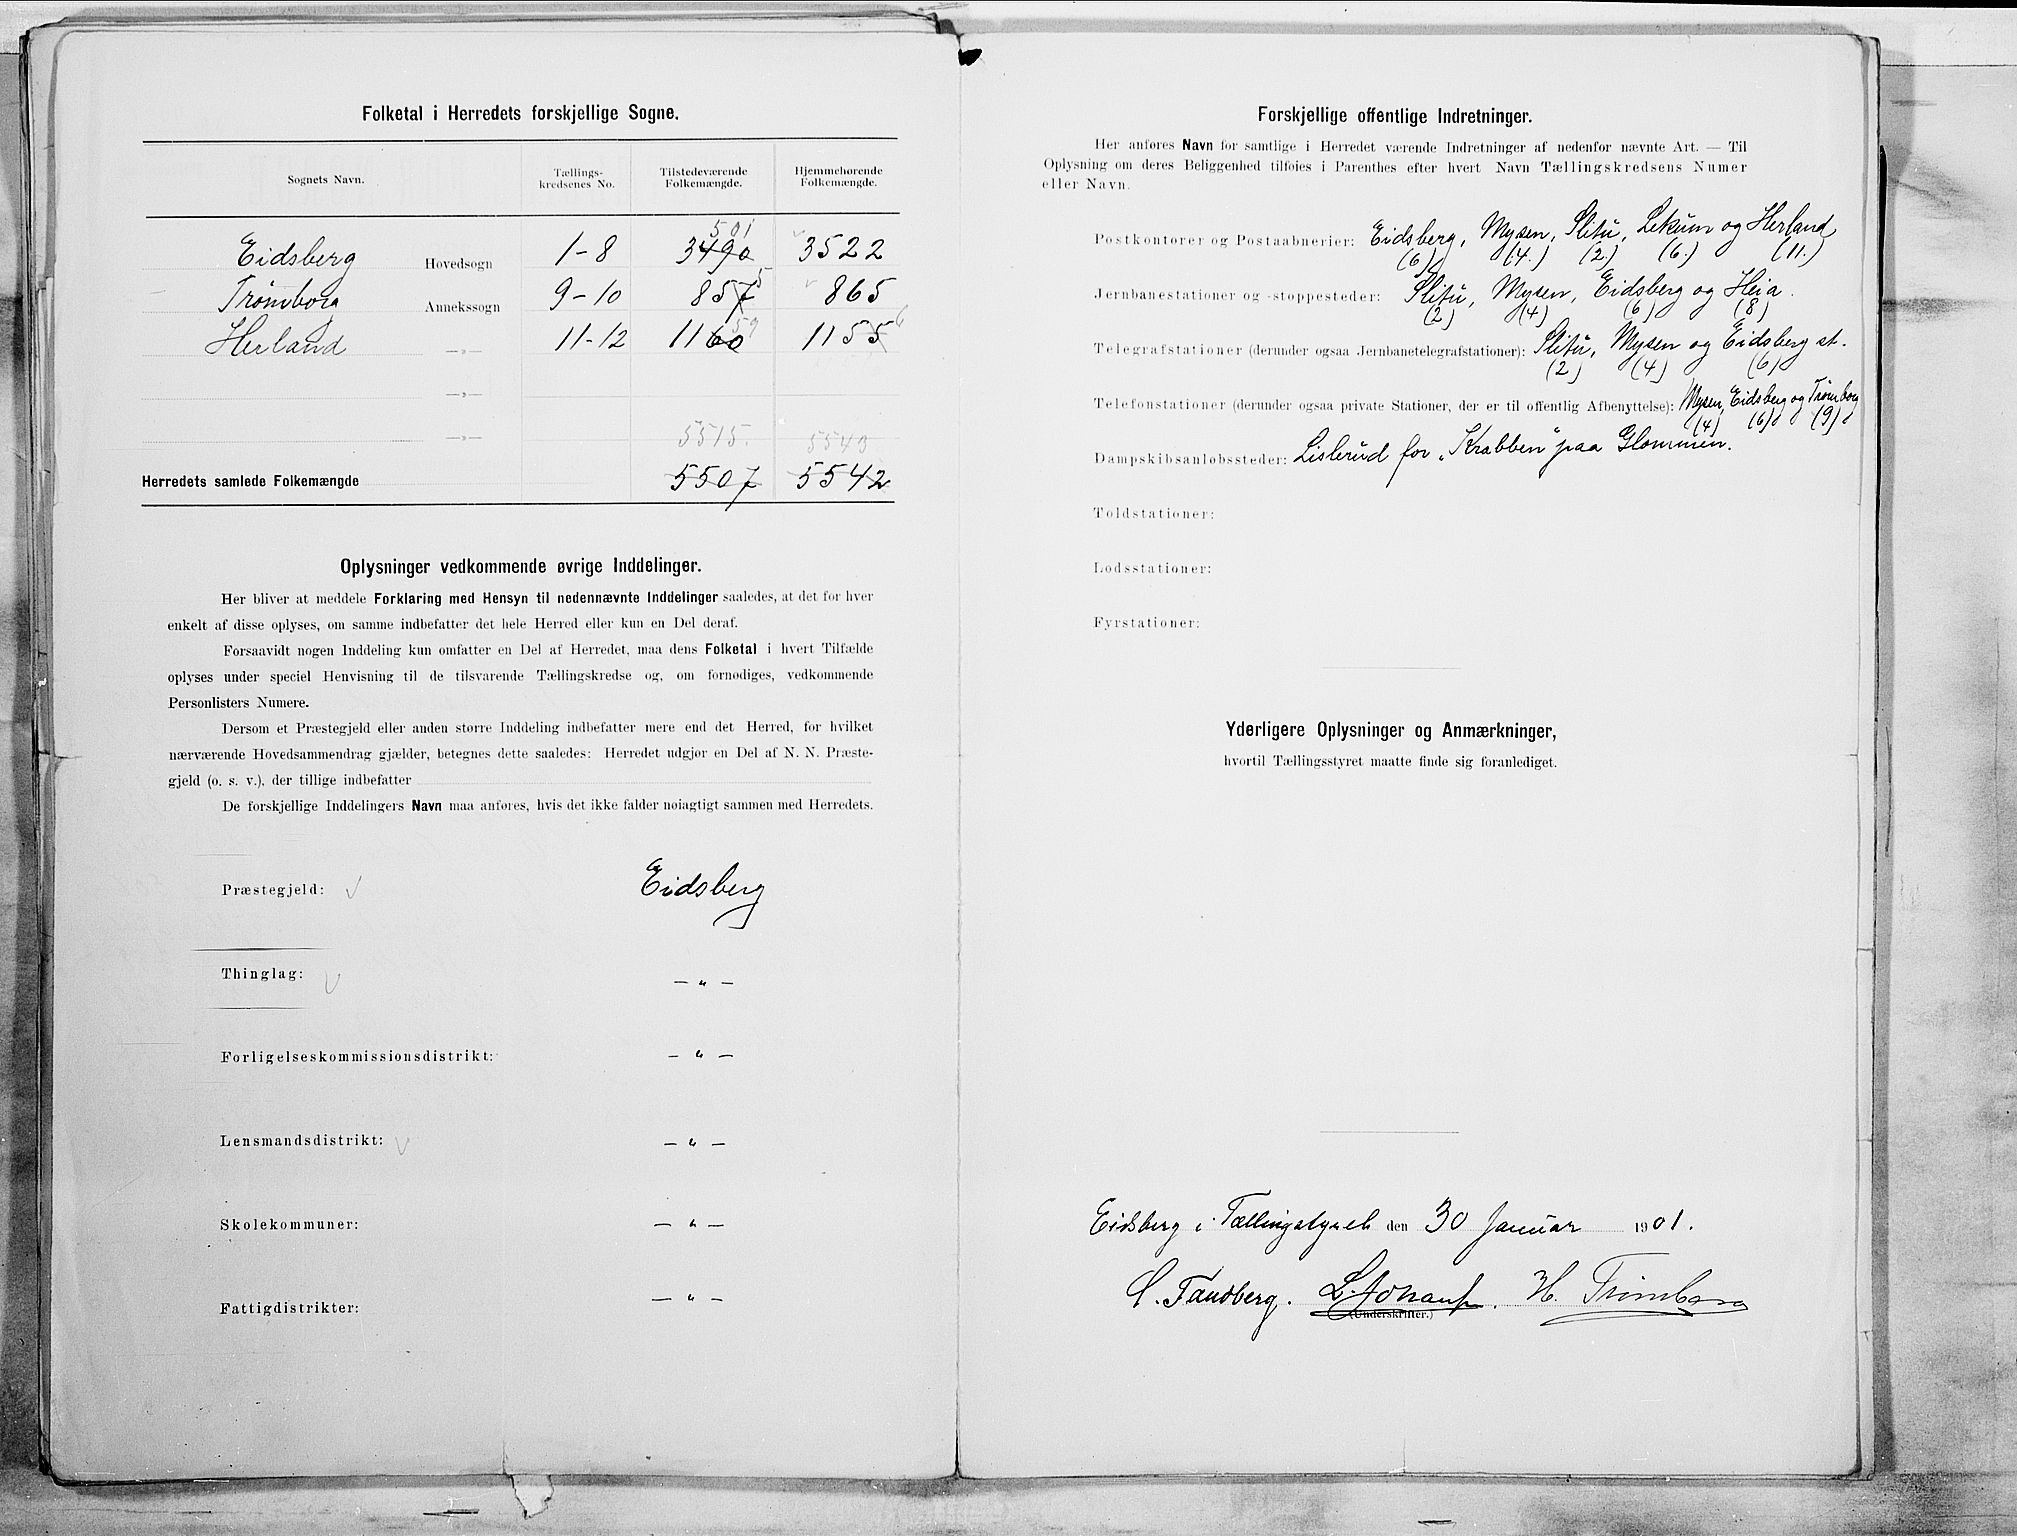 Folketal i Herredets forskjellige Sogne.
Sognets Navn. Tællings-kredsenes No. Tilstedeværende Folkemængde. Hjemmehørende Folkemængde.
501
Eidsberg Hovedsogn 1-8 3490 3522
Trømborg Annekssogn 9-10 857 5 865
Herland —„— 11-12 1160 59 1155 6
—„—
—„— 5515. 5543
Herredets samlede Folkemængde 5507 5542
Oplysninger vedkommende øvrige Inddelinger.
Her bliver at meddele Forklaring med Hensyn til nedennævnte Inddelinger saaledes, at det for hver
enkelt af disse oplyses, om samme indbefatter det hele Herred eller kun en Del deraf.
Forsaavidt nogen Inddeling kun omfatter en Del af Herredet, maa dens Folketal i hvert Tilfælde
oplyses under speciel Henvisning til de tilsvarende Tællingskredse og, om fornødiges, vedkommende
Personlisters Numere.
Dersom et Præstegjeld eller anden større Inddeling indbefatter mere end det Herred, for hvilket
nærværende Hovedsammendrag gjælder, betegnes dette saaledes: Herredet udgjør en Del af N. N. Præste-
gjeld (o. s. v.), der tillige indbefatter
De forskjellige Inddelingers Navn maa anføres, hvis det ikke falder nøiagtigt sammen med Herredets.
Præstegjeld: Eidsberg
Thinglag: — „ —
Forligelseskommissionsdistrikt: — „ —
Lensmandsdistrikt: — „ —
Skolekommuner: — „ —
Fattigdistrikter: — „ —
Forskjellige offentlige Indretninger.
Her anføres Navn for samtlige i Herredet værende Indretninger af nedenfor nævnte Art. — Til
Oplysning om deres Beliggenhed tilføies i Parenthes efter hvert Navn Tællingskredsens Numer
eller Navn.
Postkontorer og Postaabnerier: Eidsberg, Mysen, Slitu, Lekum og Herland
(6) (4.) (2.) (6.) (11.)
Jernbanestationer og -stoppesteder: Slitu, Mysen, Eidsberg og Heia.
(2) (4) (6) (8)
Telegrafstationer (derunder ogsaa Jernbanetelegrafstationer): Slitu, Mysen og Eidsberg st.
(2) (4) (6)
Telefonstationer (derunder ogsaa private Stationer, der er til offentlig Afbenyttelse): Mysen, Eidsberg og Trømborg
(4) (6) (9)
Dampskibsanløbssteder: Lislerud for „Krabben“ paa Glommen.
Toldstationer:
Lodsstationer:
Fyrstationer:
Yderligere Oplysninger og Anmærkninger,
hvortil Tællingsstyret maatte finde sig foranlediget.
Eidsberg i Tællingsstyret den 30 Januar 1901.
C. Tandberg. H. Trømborg
(Underskrifter.)